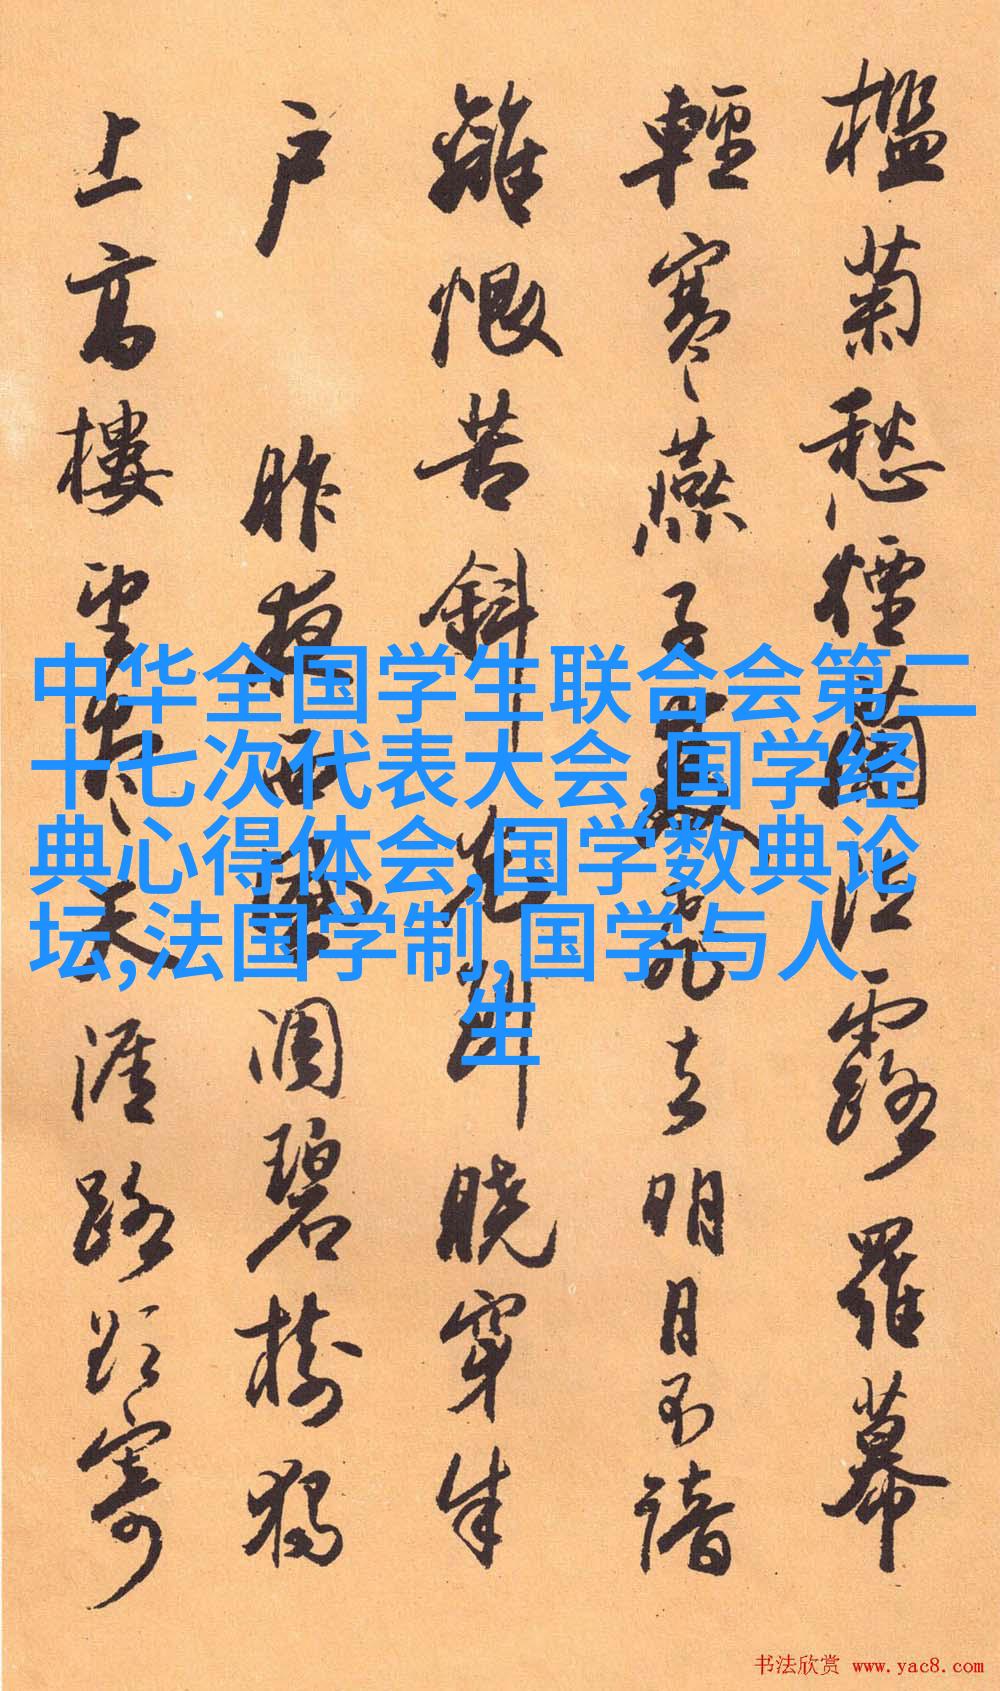 檻菊愁煙蘭泣露羅幕
輕寒燕子雙飛去明月不諳
離恨苦斜光到曉穿朱
户 昨夜西風凋碧樹獨
上高樓望盡天涯路欲寄
中华全国学生联合会第二
十七次代表大会,国学经
典心得体会,国学数典论
坛,法国学制,国学与人
生
书法欣赏 www.yac8.com